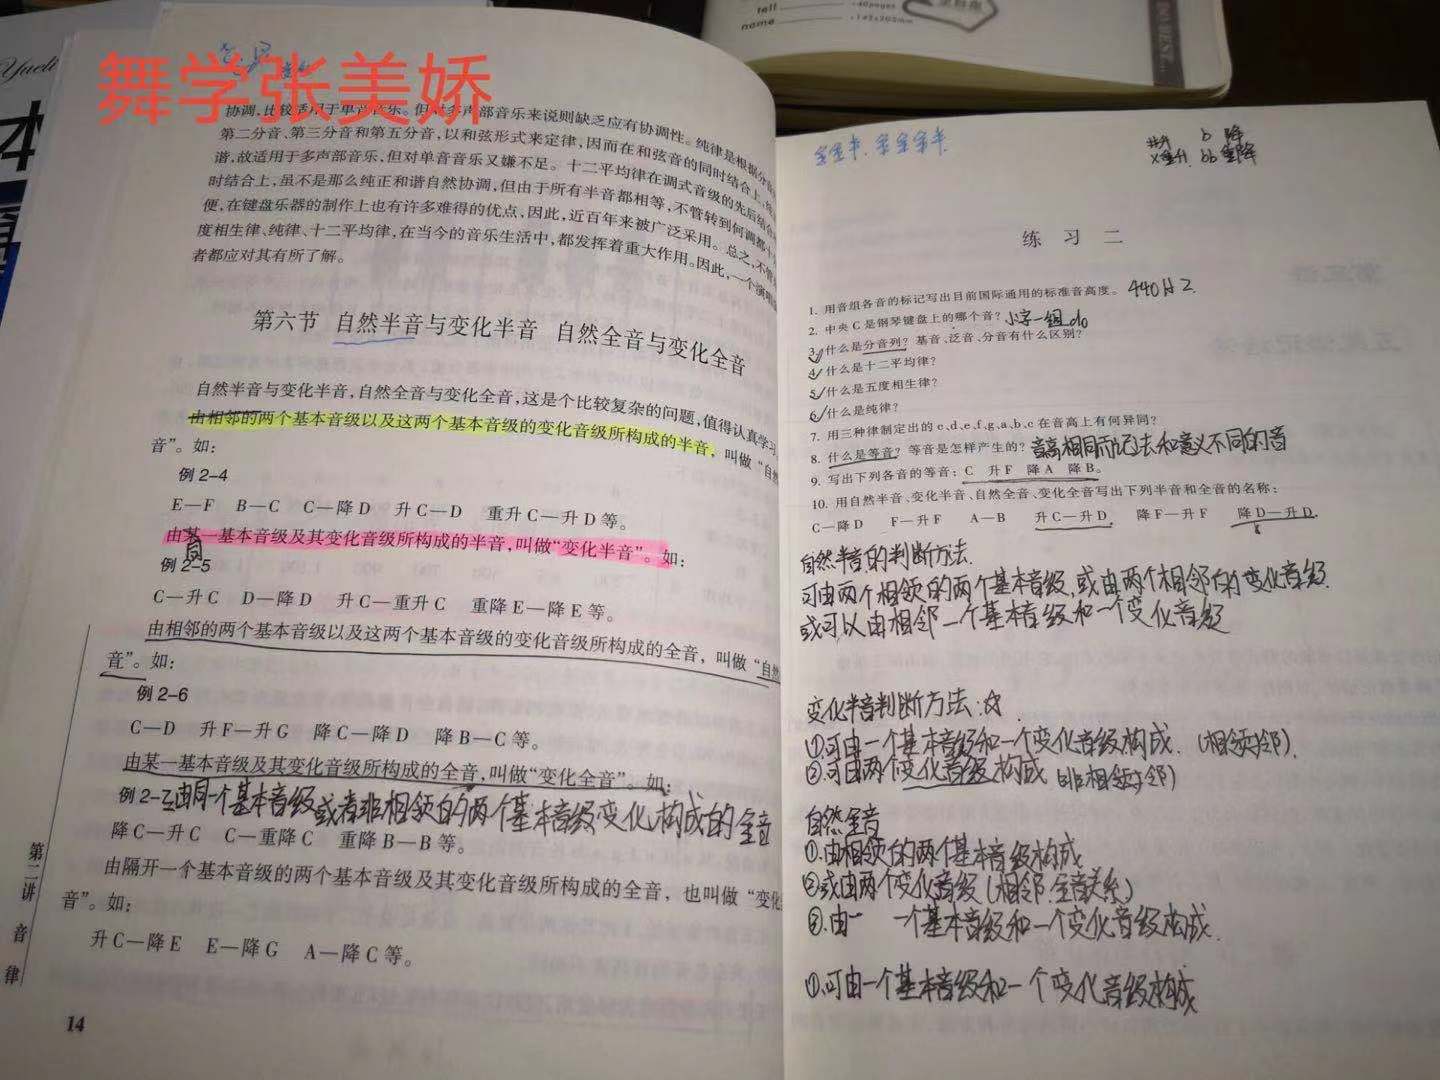 舞学张美娇
tell
name
40pages
142x202mm
DO BEST...
Yueli
协调,比较适用于单音音乐。但对多声部音乐来说则缺乏应有协调性。纯律是根据分音
第二分音、第三分音和第五分音,以和弦形式来定律,因而在和弦音的同时结合上,纯
谐,故适用于多声部音乐,但对单音音乐又嫌不足。十二平均律在调式音级的先后结合
时结合上,虽不是那么纯正和谐自然协调,但由于所有半音都相等,不管转到何调都十
便,在键盘乐器的制作上也有许多难得的优点,因此,近百年来被广泛采用。总之,不管
度相生律、纯律、十二平均律,在当今的音乐生活中,都发挥着重大作用。因此,一个演唱
者都应对其有所了解。
第六节 自然半音与变化半音 自然全音与变化全音
自然半音与变化半音,自然全音与变化全音,这是个比较复杂的问题,值得认真学习
由相邻的两个基本音级以及这两个基本音级的变化音级所构成的半音,叫做“自然
音”。如:
例 2-4
E—F B—C C—降D 升C—D 重升C—升D等。
由某一基本音级及其变化音级所构成的半音,叫做“变化半音”。如:
同
例 2-5
C—升C D—降D 升C—重升C 重降E—降E等。
由相邻的两个基本音级以及这两个基本音级的变化音级所构成的全音,叫做“自然
音”。如:
例 2-6
C—D 升F—升G 降C—降D 降B—C等。
由某一基本音级及其变化音级所构成的全音,叫做“变化全音”。如:
例 2-7 由同一个基本音级或者非相领的两个基本音级变化构成的全音
降C—升C C—重降C 重降B—B等。
由隔开一个基本音级的两个基本音级及其变化音级所构成的全音,也叫做“变化
音”。如:
升C—降E E—降G A—降C等。
第二讲 音律
14
全全半、全全全半
#升 b 降
x重升 bb重降
练 习 二
1. 用音组各音的标记写出目前国际通用的标准音高度。 440HZ
2. 中央C是钢琴键盘上的哪个音? 小字一组do
3. 什么是分音列? 基音、泛音、分音有什么区别?
4. 什么是十二平均律?
5. 什么是五度相生律?
6. 什么是纯律?
7. 用三种律制定出的c、d、e、f、g、a、b、c在音高上有何异同?
8. 什么是等音? 等音是怎样产生的? 音高相同而记法和意义不同的音
9. 写出下列各音的等音: C 升F 降A 降B。
10. 用自然半音、变化半音、自然全音、变化全音写出下列半音和全音的名称:
C—降D F—升F A—B 升C—升D 降F—升F 降D—升D
自然半音的判断方法.
可由两个相领的两个基本音级,或由两个相邻的变化音级.
或可以由相邻一个基本音级和一个变化音级
变化半音判断方法:☆.
①可由一个基本音级和一个变化音级构成.(相邻).
②可由两个变化音级构成(非相邻)
自然全音
①.由相领的两个基本音级构成
②或由两个变化音级(相邻.全音关系)
③.由一 一个基本音级和一个变化音级构成.
①.可由一个基本音级和一个变化音级构成